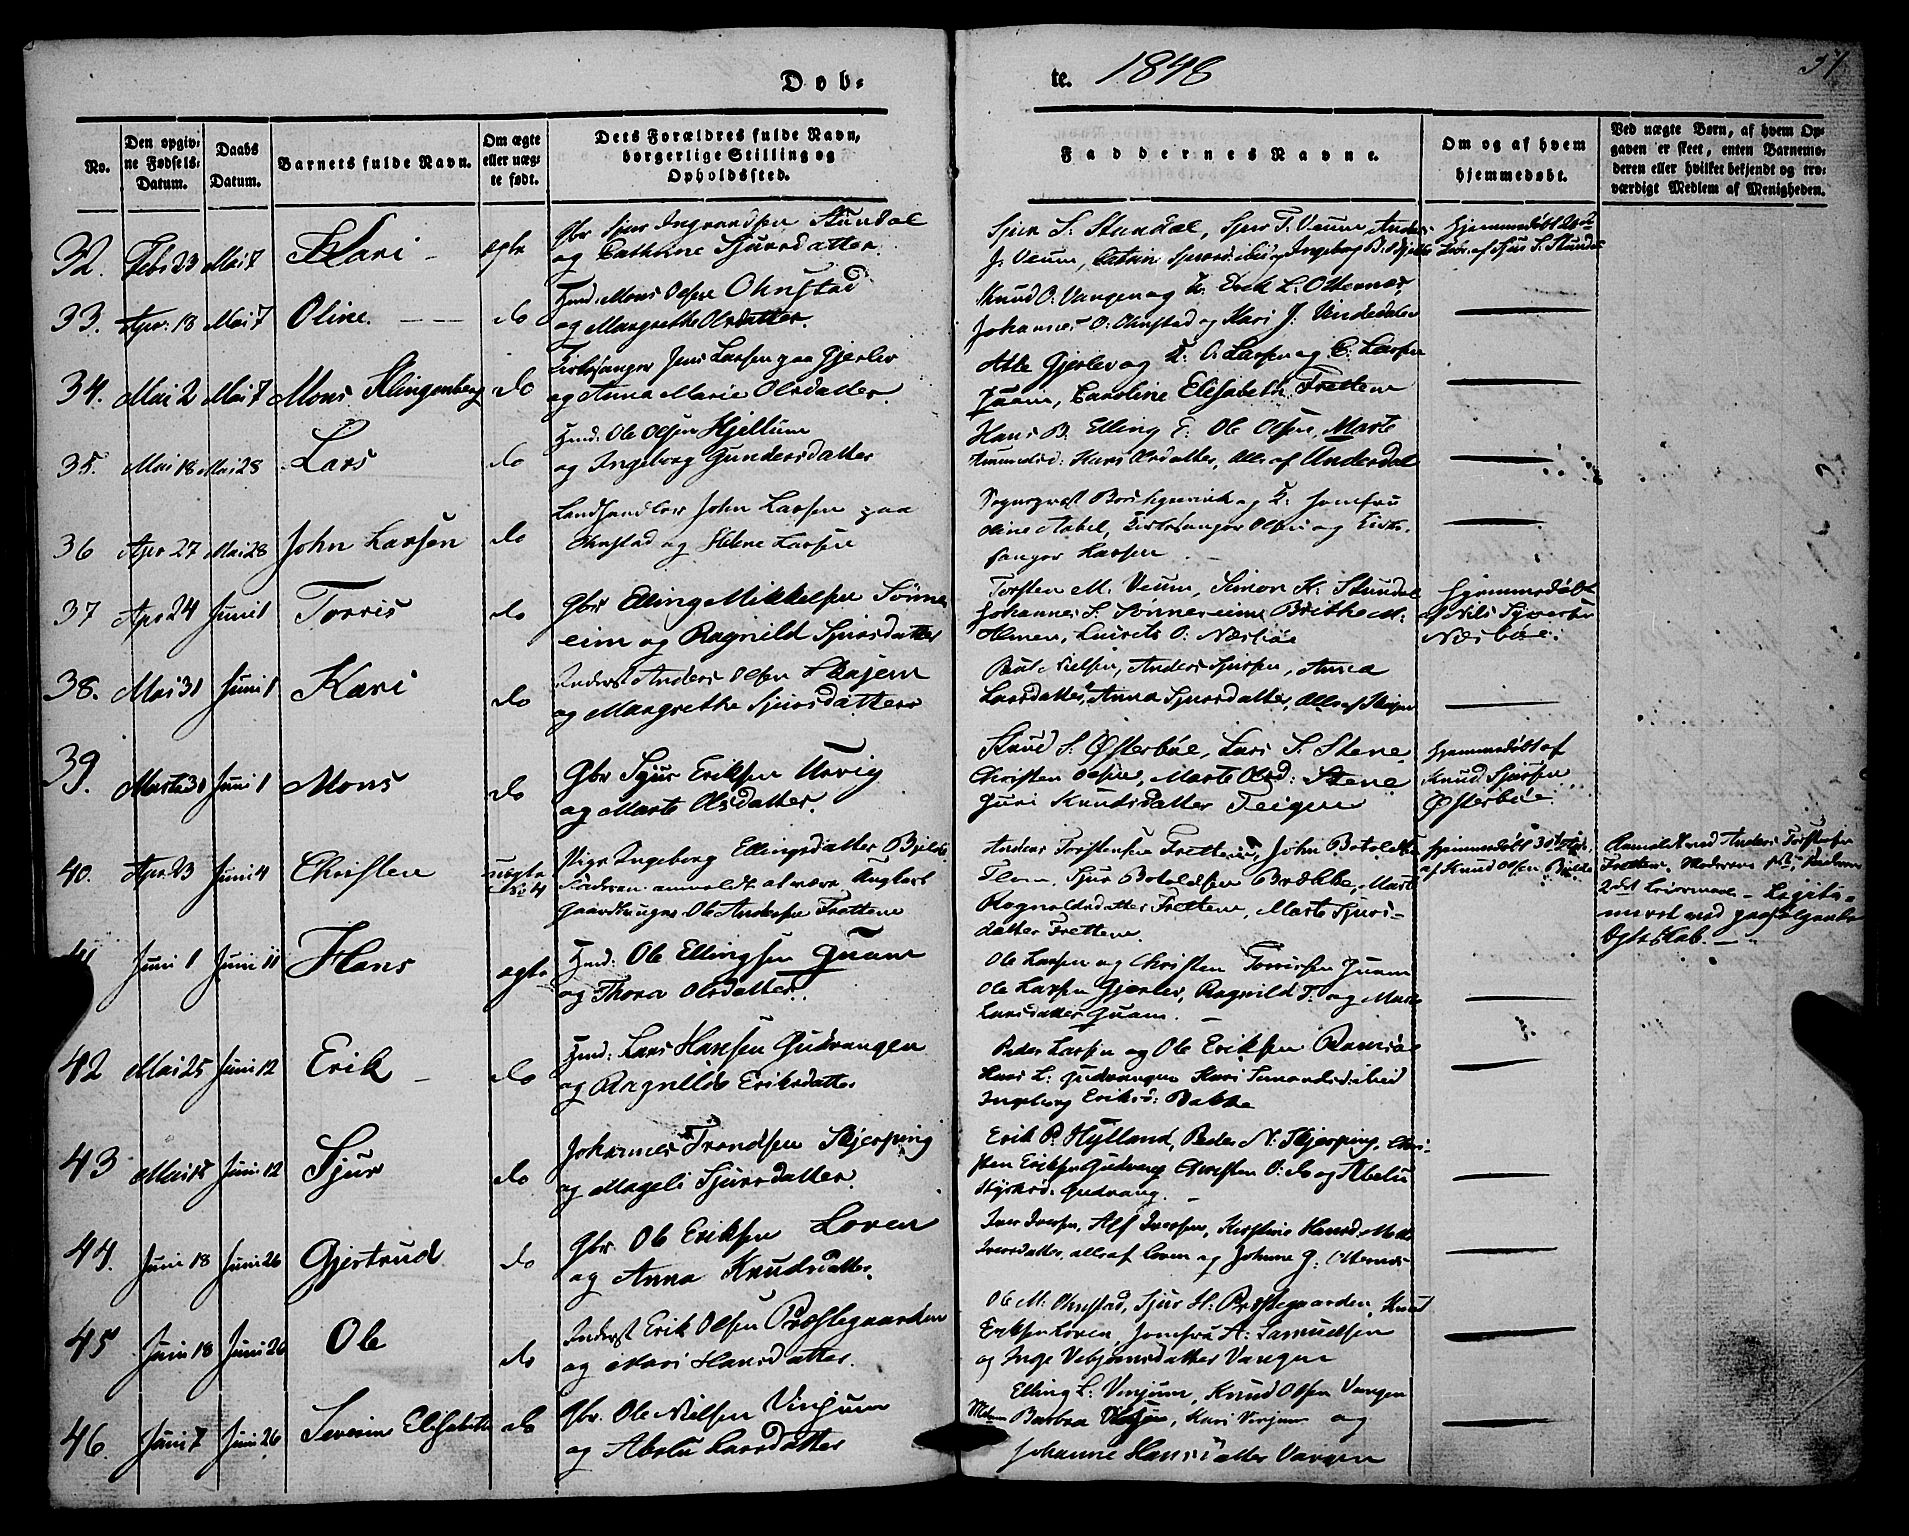 Døb-
te. 1848
37
No.
Den opgiv-
ne Fødsels-
Datum.
Daabs
Datum.
Barnets fulde Navn.
Om ægte
eller uæg-
te født.
Dets Forældres fulde Navn,
borgerlige Stilling og
Opholdssted.
Faddernes Navne.
Om og af hvem
hjemmedøbt.
Ved uægte Børn, af hvem Op-
gaven er skeet, enten Barnemo-
deren eller hvilket bekjendt og tro-
værdigt Medlem af Menigheden.
32. Febr 23 Mai 7 Kari - ægte
Gbr Sjur Ingvardsen Stundal
og Cathrine Sjursdatter.
Sjur S. Stundal, Sjur T. Veum, Anders
J. Veum, Catrin
Hjemmedøbt
33. Apr: 18 Mai 7 Oline. do
Hmd: Mons Olsen Ohnstad
og Margrethe Olsdatter.
Knud O. Vangen og K. Erik L. Otternæs,
Johannes O. Ohnstad og Kari J. Vindedalen
34. Mai 2 Mai 7 Mons Klingenberg do
Kirkesanger Jens Larsen paa Gjerløv
og Anna Marie Olsdatter.
Atte Gjerløv og K. O. Larsen og C. Larsen
Quam, Caroline Elisabeth Frettem
35. Mai 18 Mai 28 Lars do
Hmd: Ole Olsen Hjellum
og Ingeborg Gundersdatter
Hans B. Elling T. Ole Olsen, Marte
Amundsd: Kari Olsdatter, Alle af Underdal
36 Apr 27 Mai 28 John Larsen do
Landhandler John Larsen paa
Ohnstad og Helene Larsen
Sognepræst og K. Jomfru
Oline Aabel, Kirkesanger Olsen og Kirke-
sanger Larsen
37 Apr 24 Juni 1 Torris do
Gbr Elling Mikkelsen Sønner
eim og Ragnild Sjursdatter
Torsten M. Veum, Simon K. Stundal
Johannes S. Sønnereim, Brithe M.
Hjemmedøbt
af Nils Sjursen
Næsbøe.
38. Mai 31 Juni 1 Kari do
Inderst Anders Olsen Skajem
og Margrethe Sjursdatter
Poul Nielsen, Anders Sjursen, Anna
Larsdatter, Anna Sjursdatter, Alle af Skajem
39. Marts 30 Juni 1 Mons do
Gbr Sjur Eriksen Urvig
og Marte Olsdatter.
Knud S. Østerbøe, Lars S. Stene
Christen Olsen, Marte Olsd: Stene
Guri Knudsdatter Teigen
Hjemmedøbt af
Knud Sjursen
Østerbøe.
40. Apr 23 Juni 4 Christen uægte
No 4
Pige Ingeborg Ellingsdatter Bjelde
Faderen anmeldt at være Ungkarl
Gaardbruger Ole Andersen Frettem
Anders Torstensen Frettem, John Botolds
Flom, Sjur Botoldsen Brække, Marte
Ragnaldsdatter Frettem, Marte Sjurs-
datter Frettem.
Hjemmedøbt 30 Apr.
af Knud Olsen Bjelde
Anmeldt ved Anders Torstensen
Frettem. Moderens 1ste, Faderens
2det Leiermaal - Legiti-
meret ved paafølgende
Ægteskab.
Juni 1 Juni 11 Hans ægte
Hmd: Ole Ellingsen Quam
og Thora Olsdatter.
Ole Larsen og Christen Torrissen Quam
Ole Larsen Gjerløv, Ragnild T. og Marte
Larsdatter Quam.
42 Mai 25 Juni 12 Erik - do
Hmd: Lars Hansen Gudvangen
og Ragnilde Eriksdatter
Peder Larsen og Ole Eriksen Ramsøe
Hans L. Gudvangen Kari
Ingeborg Eriksd: Bakke
43 Mai 15 Juni 12 Sjur do
Johannes Trondsen Skjerping
og Mageli Sjursdatter.
Erik P. Hylland, Peder N. Skjerping, Chri-
sten Eriksen Gudvang Christen O: do og Abelu
Gudvang.
44. Juni 18 Juni 26 Gjertrud do
Gbr. Ole Eriksen Loven
og Anna Knudsdatter.
Iver Iversen, Alf Iversen, Kirstine Hansd. Mette
Iversdatter, alle af Loven og Johanne G. Otternes
45 Juni 18 Juni 26 Ole do
Inderst Erik Olsen Præstegaarden
og Kari Hansdatter.
Ole M. Ohnstad, Sjur H. Præstegaarden, Knud
Eriksen Loven, Jomfru A. Samuelsen
og Inge Vebjørnsdatter Vangen
46. Juni 7 Juni 26 Severine Elisabeth do
Gbr. Ole Nielsen Vinjum
og Abelu Larsdatter
Elling L. Vinjum, Knud Olsen Vangen
Mdm Barbra Vinjum, Kari Vinjum og
Johanne Hansdatter Vangen